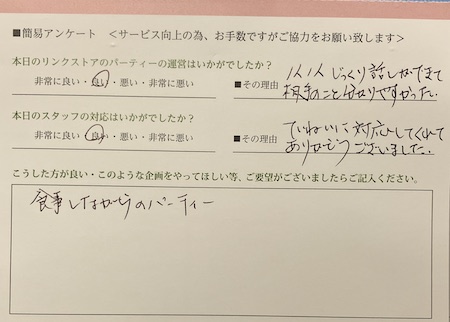 ■簡易アンケート ＜サービス向上の為、お手数ですがご協力をお願い致します＞
本日のリンクストアのパーティーの運営はいかがでしたか？
非常に良い・良い・悪い・非常に悪い
■その理由
1人1人じっくり話しができて
相手のこと分かりやすかった。
本日のスタッフの対応はいかがでしたか？
非常に良い・良い・悪い・非常に悪い
■その理由
ていねいに対応してくれて
ありがとうございました。
こうした方が良い・このような企画をやってほしい等、ご要望がございましたらご記入ください。
食事しながらのパーティー